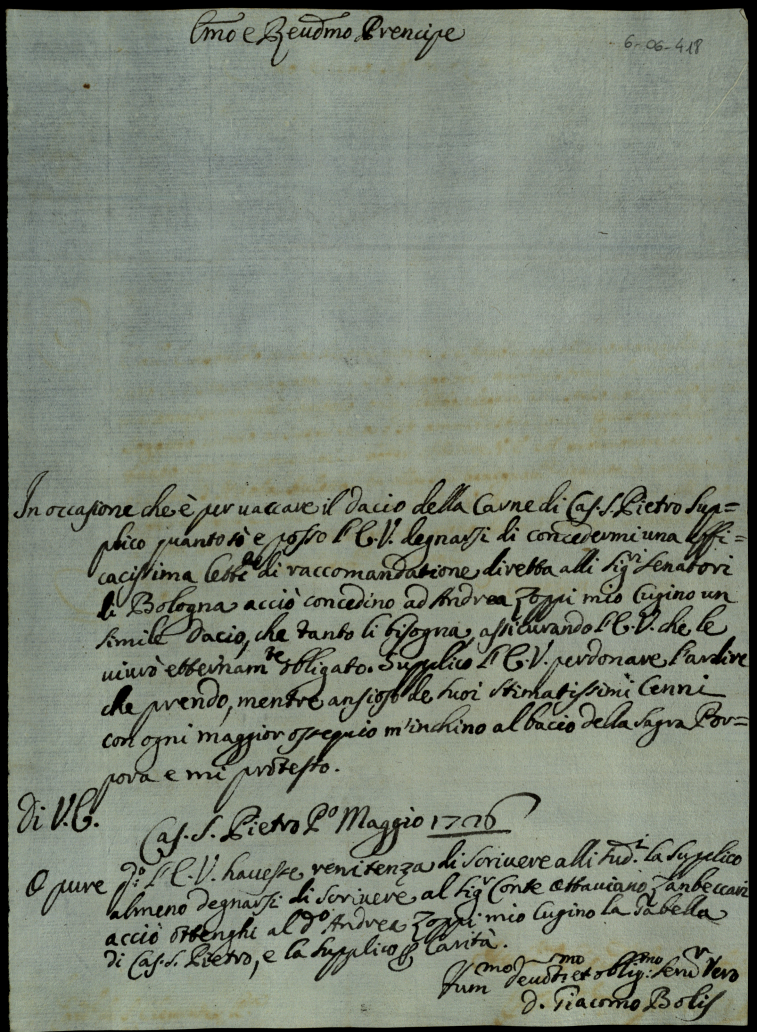 Emo e Reudmo Prencipe
6-06-418
In occasione che è per uaccare il dacio della Carne di Cas. S. Pietro Sup=
plico quanto sò e posso l'E.V. degnarsi di concedermi una effi=
cacissima lett.ra di raccomandatione diretta alli Sig.ri Senatori
di Bologna acciò concedino ad Andrea Zoppi mio Cugino un
simile Dacio, che tanto li bisogna, assicurando l'E.V. che le
uiurò etternam.te obligato. Supplico l'E.V. perdonare l'ardire
che prendo, mentre ansioso de suoi stimatissimi Cenni
con ogni maggior ossequio m'inchino al bacio della Sagra Por=
pora e mi protesto.
Di V.E.
Cas. S. Pietro P.o Maggio 1726
O pure q.do l'E.V. hauesse renitenza di scriuere alli sud.i la supplico
almeno degnarsi di scriuere al Sig.r Conte Ottauiano Zanbeccari
acciò ottenghi al d.o Andrea Zoppi mio Cugino la Tabella
di Cas. S. Pietro, e la supplico p Carità.
Hum.mo Deuot.mo et oblig.mo seru.r Vero
D. Giacomo Bolis